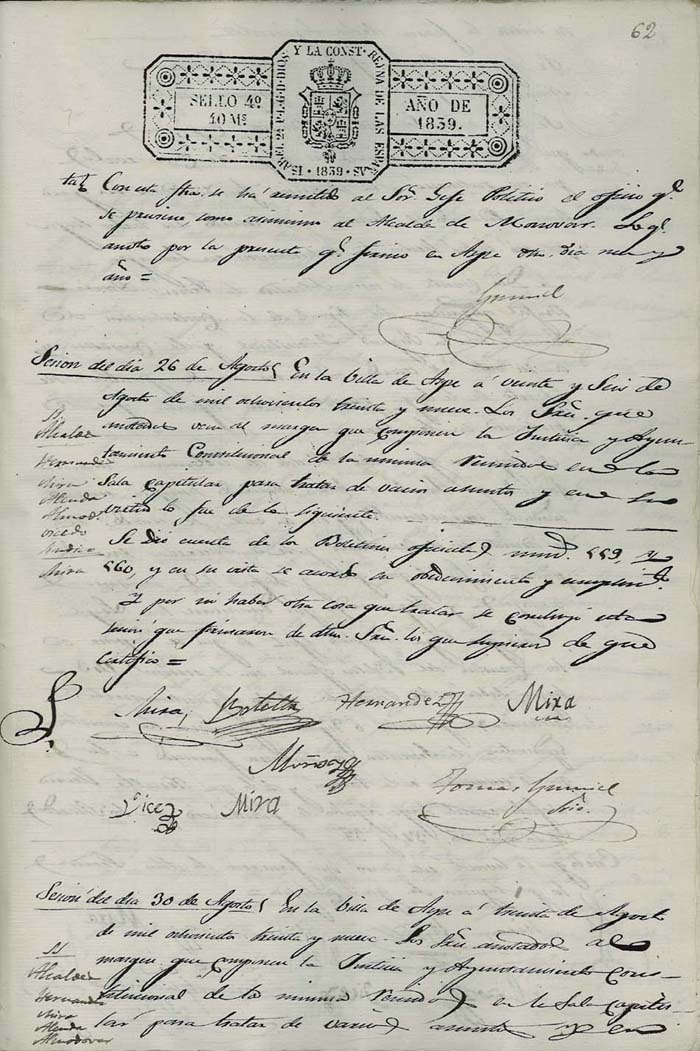 62
ISABEL 2ª P.L.G.D.DIOS Y LA CONST. REYNA DE LAS ESPAÑAS
SELLO 4º
40 Ms
AÑO DE
1839.
1839
Con esta fha. se há remitido al Sor. Gefe Politico el oficio q.e
se previene, como asimismo al Alcalde de Monovar. Lo q.e
anoto por la presente q.e firmo en Aspe dho. dia mes y
año =
Gumiel
Sesion del dia 26 de Agosto En la Villa de Aspe á veinte y Seis de
Agosto de mil ochocientos treinta y nueve. Los Sres. que
anotados van al margen que componen la Justicia y Ayun-
tamiento Constitucional de la misma reunidos en la
Sala capitular para tratar de varios asuntos y en su
virtud lo fue de lo siguiente.
SS
Alcalde
Hernandez
Mira
Almod.
Mira
Se dió cuenta de los Boletines oficiales num.s 559, y
560, y en su vista se acordó su obedecimiento y cumplim.to
Y por no haber otra cosa que tratar se concluyó esta
sesion que firmaron de dhos. Sres. los que supieron de que
Certifico =
Mira
Botella
Hernandez
Mira
Muñoz
Mira
Tomas Gumiel
Srio.
Sesion del dia 30 de Agosto En la Villa de Aspe á treinta de Agosto
de mil ochocientos treinta y nueve. Los Sres. anotados al
margen que componen la Justicia y Ayuntamiento Cons-
titucional de la misma reunidos en la Sala Capitu-
lar para tratar de varios asuntos y en
SS
Alcalde
Hernandez
Mira
Almodovar